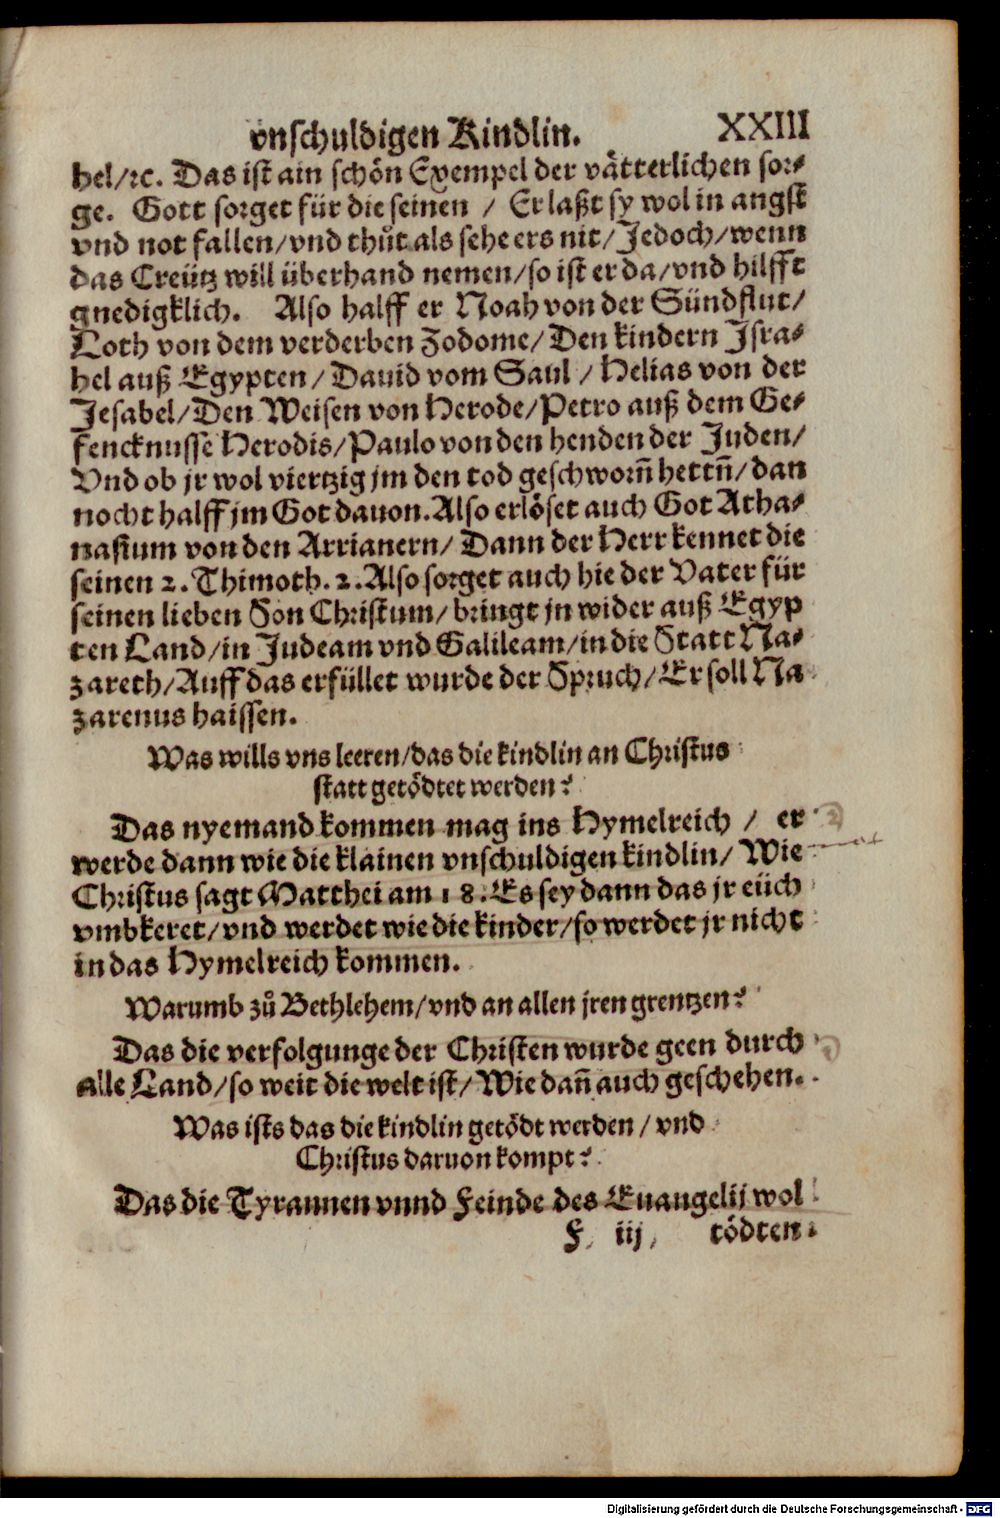 vnschuldigen Kindlin. XXIII
hel/ꝛc. Das ist ain schön Exempel der vätterlichen sor⸗
ge. Gott sorget für die seinen / Er laßt sy wol in angst
vnd not fallen/vnd thůt als sehe ers nit/Jedoch/wenn
das Creütz will überhand nemen/so ist er da/vnd hilfft
gnedigklich. Also halff er Noah von der Sündflut/
Loth von dem verderben Zodome/Den kindern Jsra⸗
hel auß Egypten/Dauid vom Saul / Helias von der
Jesabel/Den Weisen von Herode/Petro auß dem Ge⸗
fencknusse Herodis/Paulo von den henden der Juden/
Vnd ob jr wol viertzig jm den tod geschworn̄ hettn̄/dan
nocht halff jm Got dauon. Also erlöset auch Got Atha⸗
nasium von den Arrianern/ Dann der Herr kennet die
seinen 2. Thimoth. 2. Also sorget auch hie der Vater für
seinen lieben Son Christum/bringt jn wider auß Egyp
ten Land/in Judeam vnd Galileam/in die Statt Na⸗
zareth/Auff das erfüllet wurde der Spruch/Er soll Na
zarenus haissen.
Was wills vns leeren/das die kindlin an Christus
statt getödtet werden?
Das nyemand kommen mag ins Hymelreich / er
werde dann wie die klainen vnschuldigen kindlin/ Wie
Christus sagt Matthei am 18. Es sey dann das jr eüch
vmbkeret/vnd werdet wie die kinder/so werdet jr nicht
in das Hymelreich kommen.
Warumb zů Bethlehem/vnd an allen jren grentzen?
Das die verfolgunge der Christen wurde geen durch
alle Land/so weit die welt ist/Wie dañ auch geschehen.
Was ists das die kindlin getödt werden/vnd
Christus daruon kompt?
Das die Tyrannen vnnd Feinde des Euangelij wol
F iij tödten
Digitalisierung gefördert durch die Deutsche Forschungsgemeinschaft - DFG